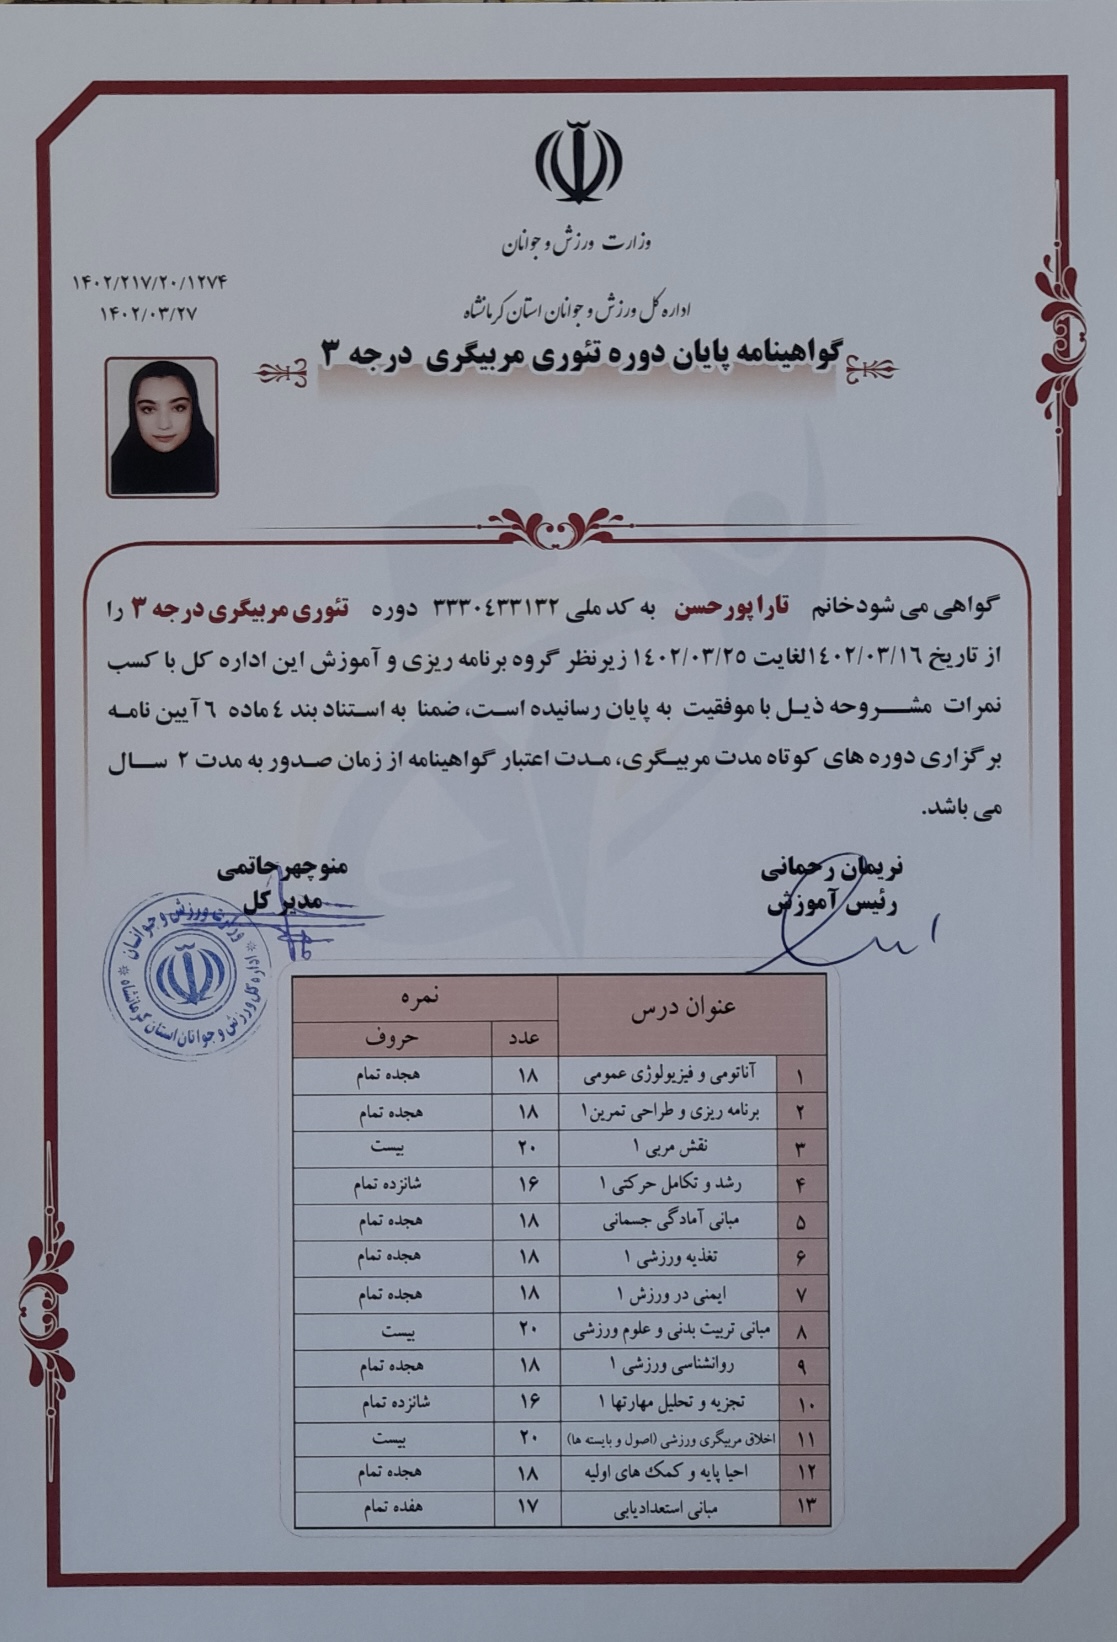 وزارت ورزش و جوانان
۱۴۰۲/۲۱۷/۲۰/۱۲۷۴
۱۴۰۲/۰۳/۲۷
اداره کل ورزش و جوانان استان کرمانشاه
گواهینامه پایان دوره تئوری مربیگری درجه ۳
گواهی می شودخانم تارا پورحسن به کد ملی ۳۳۳۰٤۳۳۱۳۲ دوره تئوری مربیگری درجه ۳ را
از تاریخ ۱٤۰۲/۰۳/۱٦لغایت ۱٤۰۲/۰۳/۲٥ زیرنظر گروه برنامه ریزی و آموزش این اداره کل با کسب
نمرات مشروحه ذیل با موفقیت به پایان رسانیده است، ضمنا به استناد بند ٤ ماده ٦ آیین نامه
برگزاری دوره های کوتاه مدت مربیگری، مدت اعتبار گواهینامه از زمان صدور به مدت ۲ سال
می باشد.
نریمان رحمانی
رئیس آموزش
منوچهر حاتمی
مدیر کل
وزارت ورزش و جوانان
اداره کل ورزش و جوانان استان کرمانشاه
عنوان درس نمره
عدد حروف
۱ آناتومی و فیزیولوژی عمومی ۱۸ هجده تمام
۲ برنامه ریزی و طراحی تمرین۱ ۱۸ هجده تمام
۳ نقش مربی ۱ ۲۰ بیست
۴ رشد و تکامل حرکتی ۱ ۱۶ شانزده تمام
۵ مبانی آمادگی جسمانی ۱۸ هجده تمام
۶ تغذیه ورزشی ۱ ۱۸ هجده تمام
۷ ایمنی در ورزش ۱ ۱۸ هجده تمام
۸ مبانی تربیت بدنی و علوم ورزشی ۲۰ بیست
۹ روانشناسی ورزشی ۱ ۱۸ هجده تمام
۱۰ تجزیه و تحلیل مهارتها ۱ ۱۶ شانزده تمام
۱۱ اخلاق مربیگری ورزشی (اصول و بایسته ها) ۲۰ بیست
۱۲ احیا پایه و کمک های اولیه ۱۸ هجده تمام
۱۳ مبانی استعدادیابی ۱۷ هفده تمام